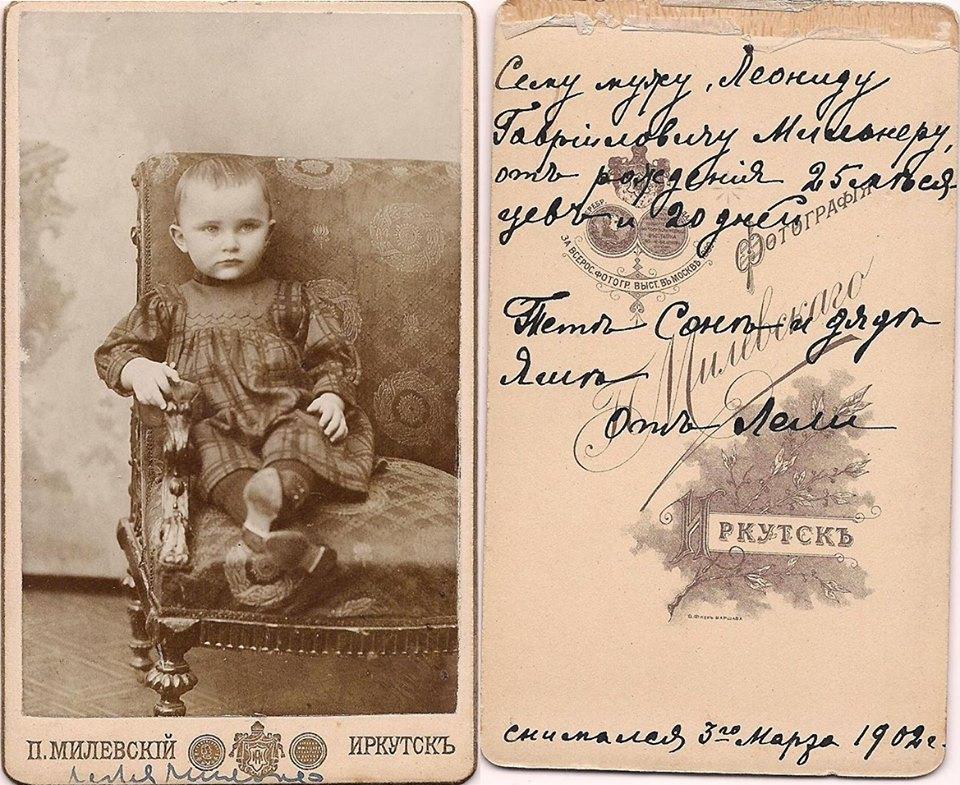 П. МИЛЕВСКІЙ ИРКУТСКЪ
Сему мужу, Леониду
Гавріиловичу Милонеру,
отъ рожденія 25 мѣся
цевъ и 20 дней
ФОТОГРАФІЯ
ЗА ВСЕРОС. ФОТОГР. ВЫСТ. ВЪ МОСКВѢ
Милевскаго
Тетѣ Сонѣ и дядѣ
Яшѣ
отъ Лели
ИРКУТСКЪ
снимался 3го Марта 1902 г.